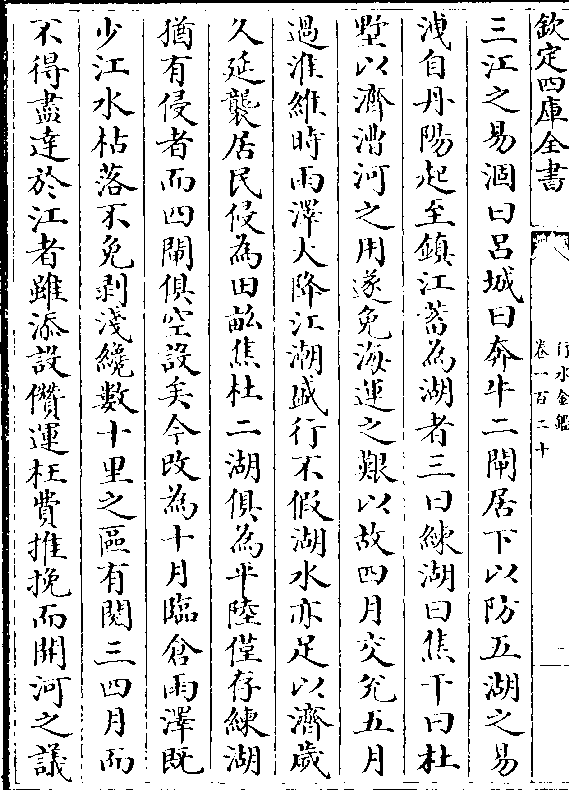 欽定四庫全書
行水金鑑
卷一百二十
二
三江之易涸曰呂城曰奔牛二閘居下以防五湖之易
洩自丹陽起至鎮江蓄為湖者三曰練湖曰焦干曰杜
墅以濟漕河之用遂免海運之艱以故四月交兊五月
過淮維時雨澤大降江潮盛行不假湖水亦足以濟歲
久延襲居民侵為田畝焦杜二湖俱為平陸僅存練湖
猶有侵者而四閘俱空設矣今改為十月臨倉雨澤既
少江水枯落不免剥淺纔數十里之區有閱三四月而
不得盡達於江者雖添設儧運枉費推挽而開河之議